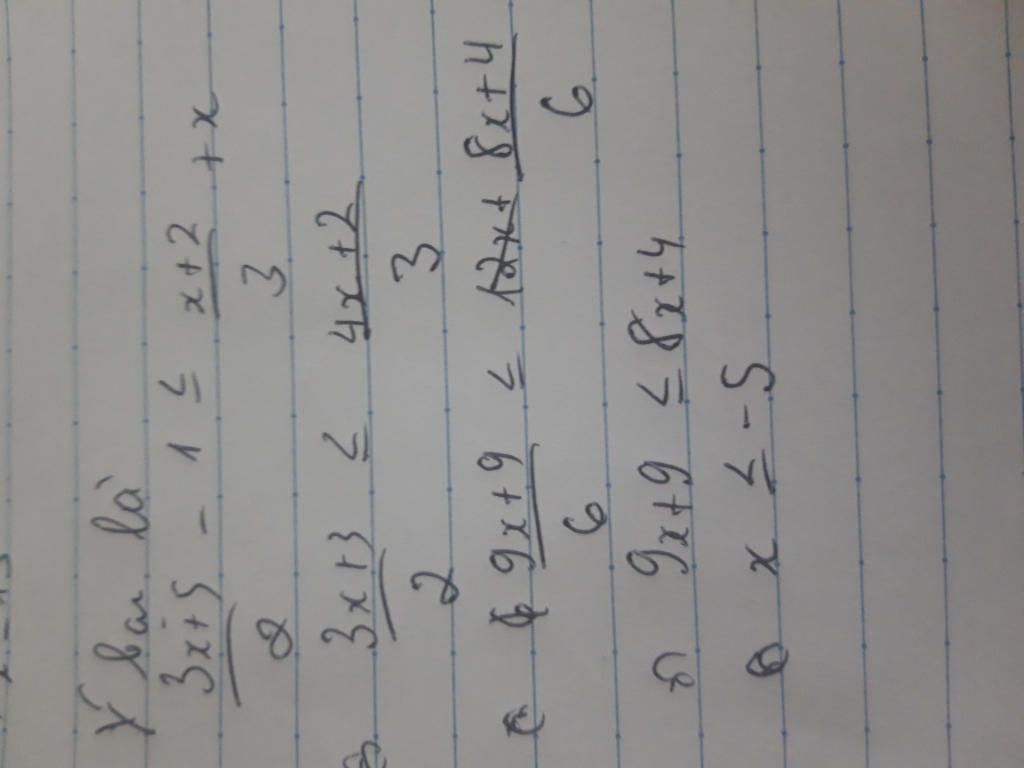 Ý bạn là
3x+5/2 - 1 ≤ x+2/3 + x
⇔ 3x+3/2 ≤ 4x+2/3
9x+9/6 ≤ 8x+4/6
⇔ 9x+9 ≤ 8x+4
⇔ x ≤ -5